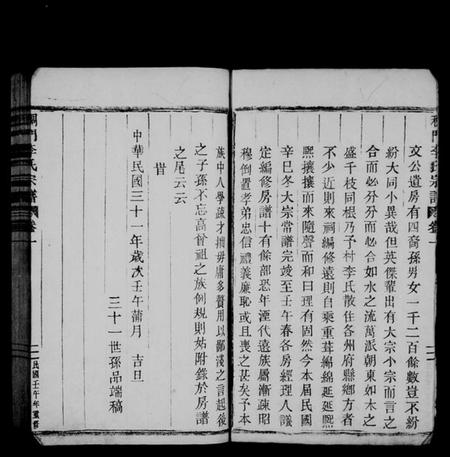 文公遺房有四裔孫男女一千二百餘數豈不紛
紛大同小異哉但英傑輩出有大宗小宗而言之
合而必分分而必合如水之流萬派朝東如木之
盛千枝同根乃予村李氏散住各州府縣鄉方者
不少近則來祠編修遠則自乘重茸綿綿延延熙
熙攘攘而來隨聲而和曰理有固然今本屆民國
辛巳冬大宗常譜完竣至壬午春各房經理人議
定編修房譜十有餘部恐年湮代遠族屬漸疎昭
穆倒置孝弟忠信禮義廉恥或且喪之甚矣予本
族中人學疏才拙毋庸多贅用以鄙淺之言起後
之子孫不忘高曾祖之族例規則姑附錄於房譜
之尾云云
旹
中華民國三十一年歲次壬午蒲月 吉旦
三十一世孫品端稿
李氏宗譜 卷一
民國壬午年重修